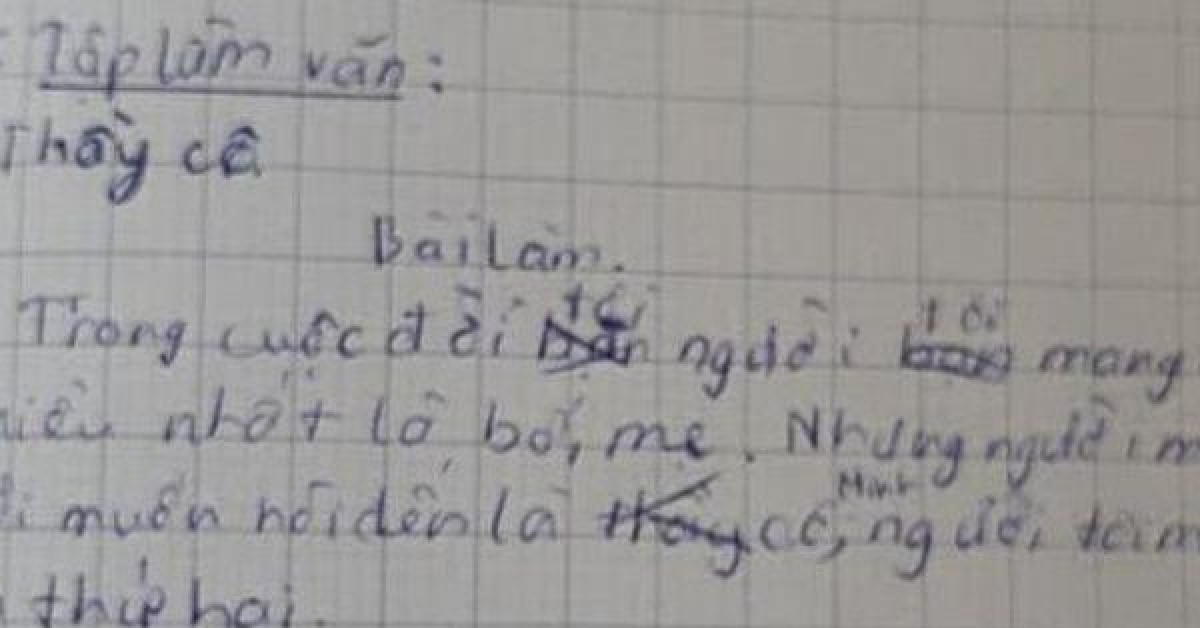 Tập làm văn:
Thầy cô
Bài Làm.
Trong cuộc đời tôi người tôi mang
nhất là bố, mẹ. Nhưng người
muốn nói đến là cô, người
thứ hai.